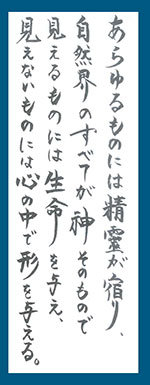 あらゆるものには精靈が宿り、
自然界のすべてが神そのもので
見えるものには生命を与え、
見えないものには心の中で形を与える。